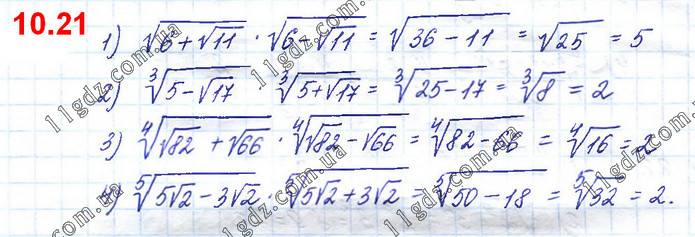 10.21
1) √(6+√11) · √(6-√11) = √(36-11) = √25 = 5
2) ∛(5-√17) ∛(5+√17) = ∛(25-17) = ∛8 = 2
3) ∜(√82+√66) · ∜(√82-√66) = ∜(82-66) = ∜16 = 2
4) ⁵√(5√2-3√2) · ⁵√(5√2+3√2) = ⁵√(50-18) = ⁵√32 = 2.
11gdz.com.ua
11gdz.com.ua
11gdz.com.ua
11gdz.com.ua